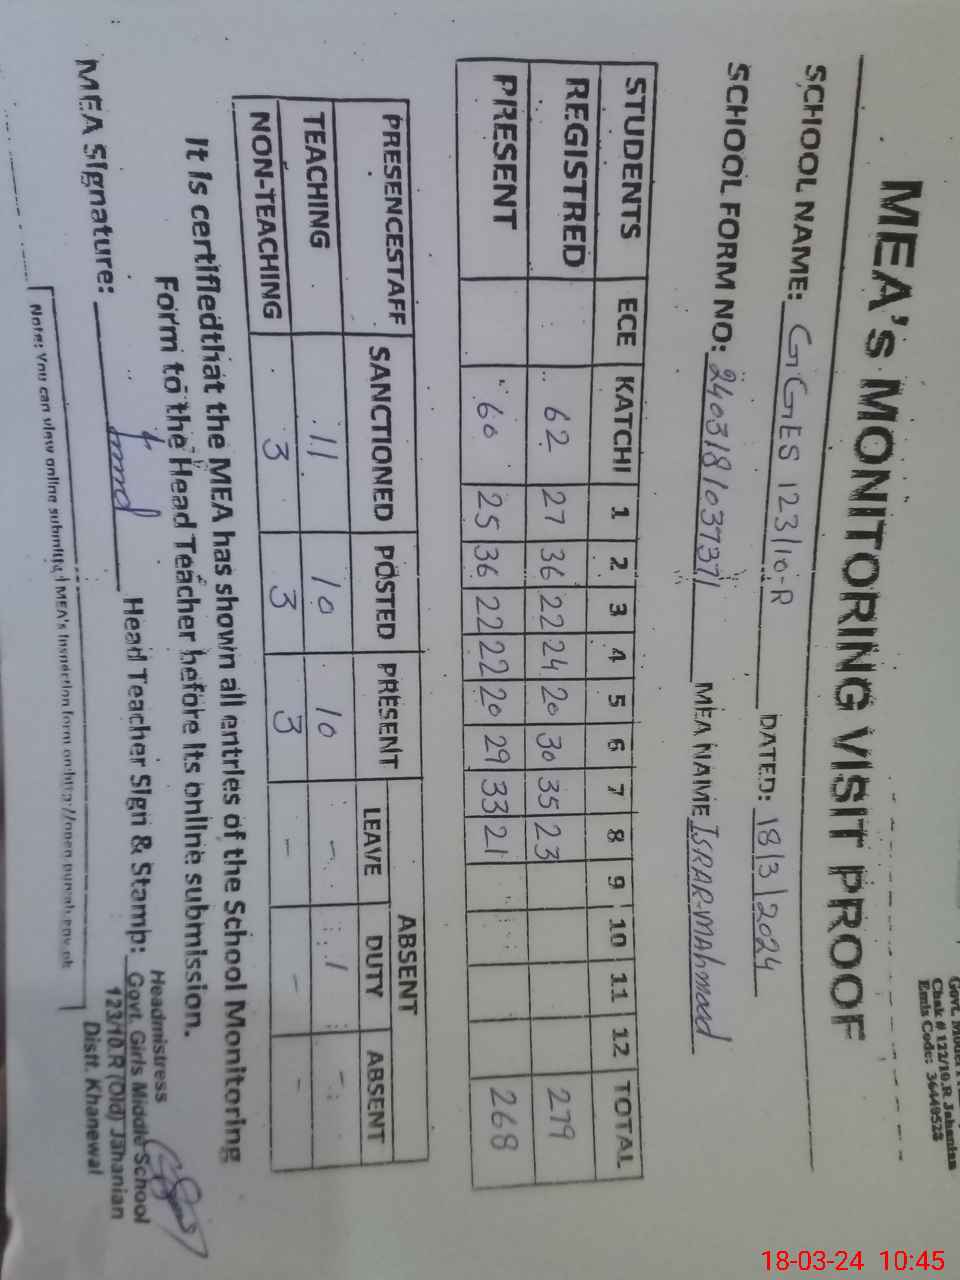 Chak # 122/10.R Jahanian
Emis Code: 36440528
MEA's MONITORING VISIT PROOF
SCHOOL NAME: GGES 123/10-R DATED: 18/3/2024
SCHOOL FORM NO: 240318/037371 MEA NAME ISRAR-MAhmood
STUDENTS ECE KATCHI 1 2 3 4 5 6 7 8 9 10 11 12 TOTAL
REGISTRED 62 27 36 22 24 20 30 35 23 279
PRESENT 60 25 36 22 22 20 29 33 21 268
PRESENCESTAFF SANCTIONED POSTED PRESENT ABSENT
LEAVE DUTY ABSENT
TEACHING 11 10 10 - 1 -
NON-TEACHING 3 3 3 - - -
It is certifiedthat the MEA has shown all entries of the School Monitoring
Form to the Head Teacher before its online submission.
MEA Signature: Head Teacher Sign & Stamp:
Headmistress
Govt. Girls Middle School
123/10.R (Old) Jahanian
Distt. Khanewal
Note: You can view online submitted MEA's Inspection form on:http://open.punjab.gov.pk
18-03-24 10:45